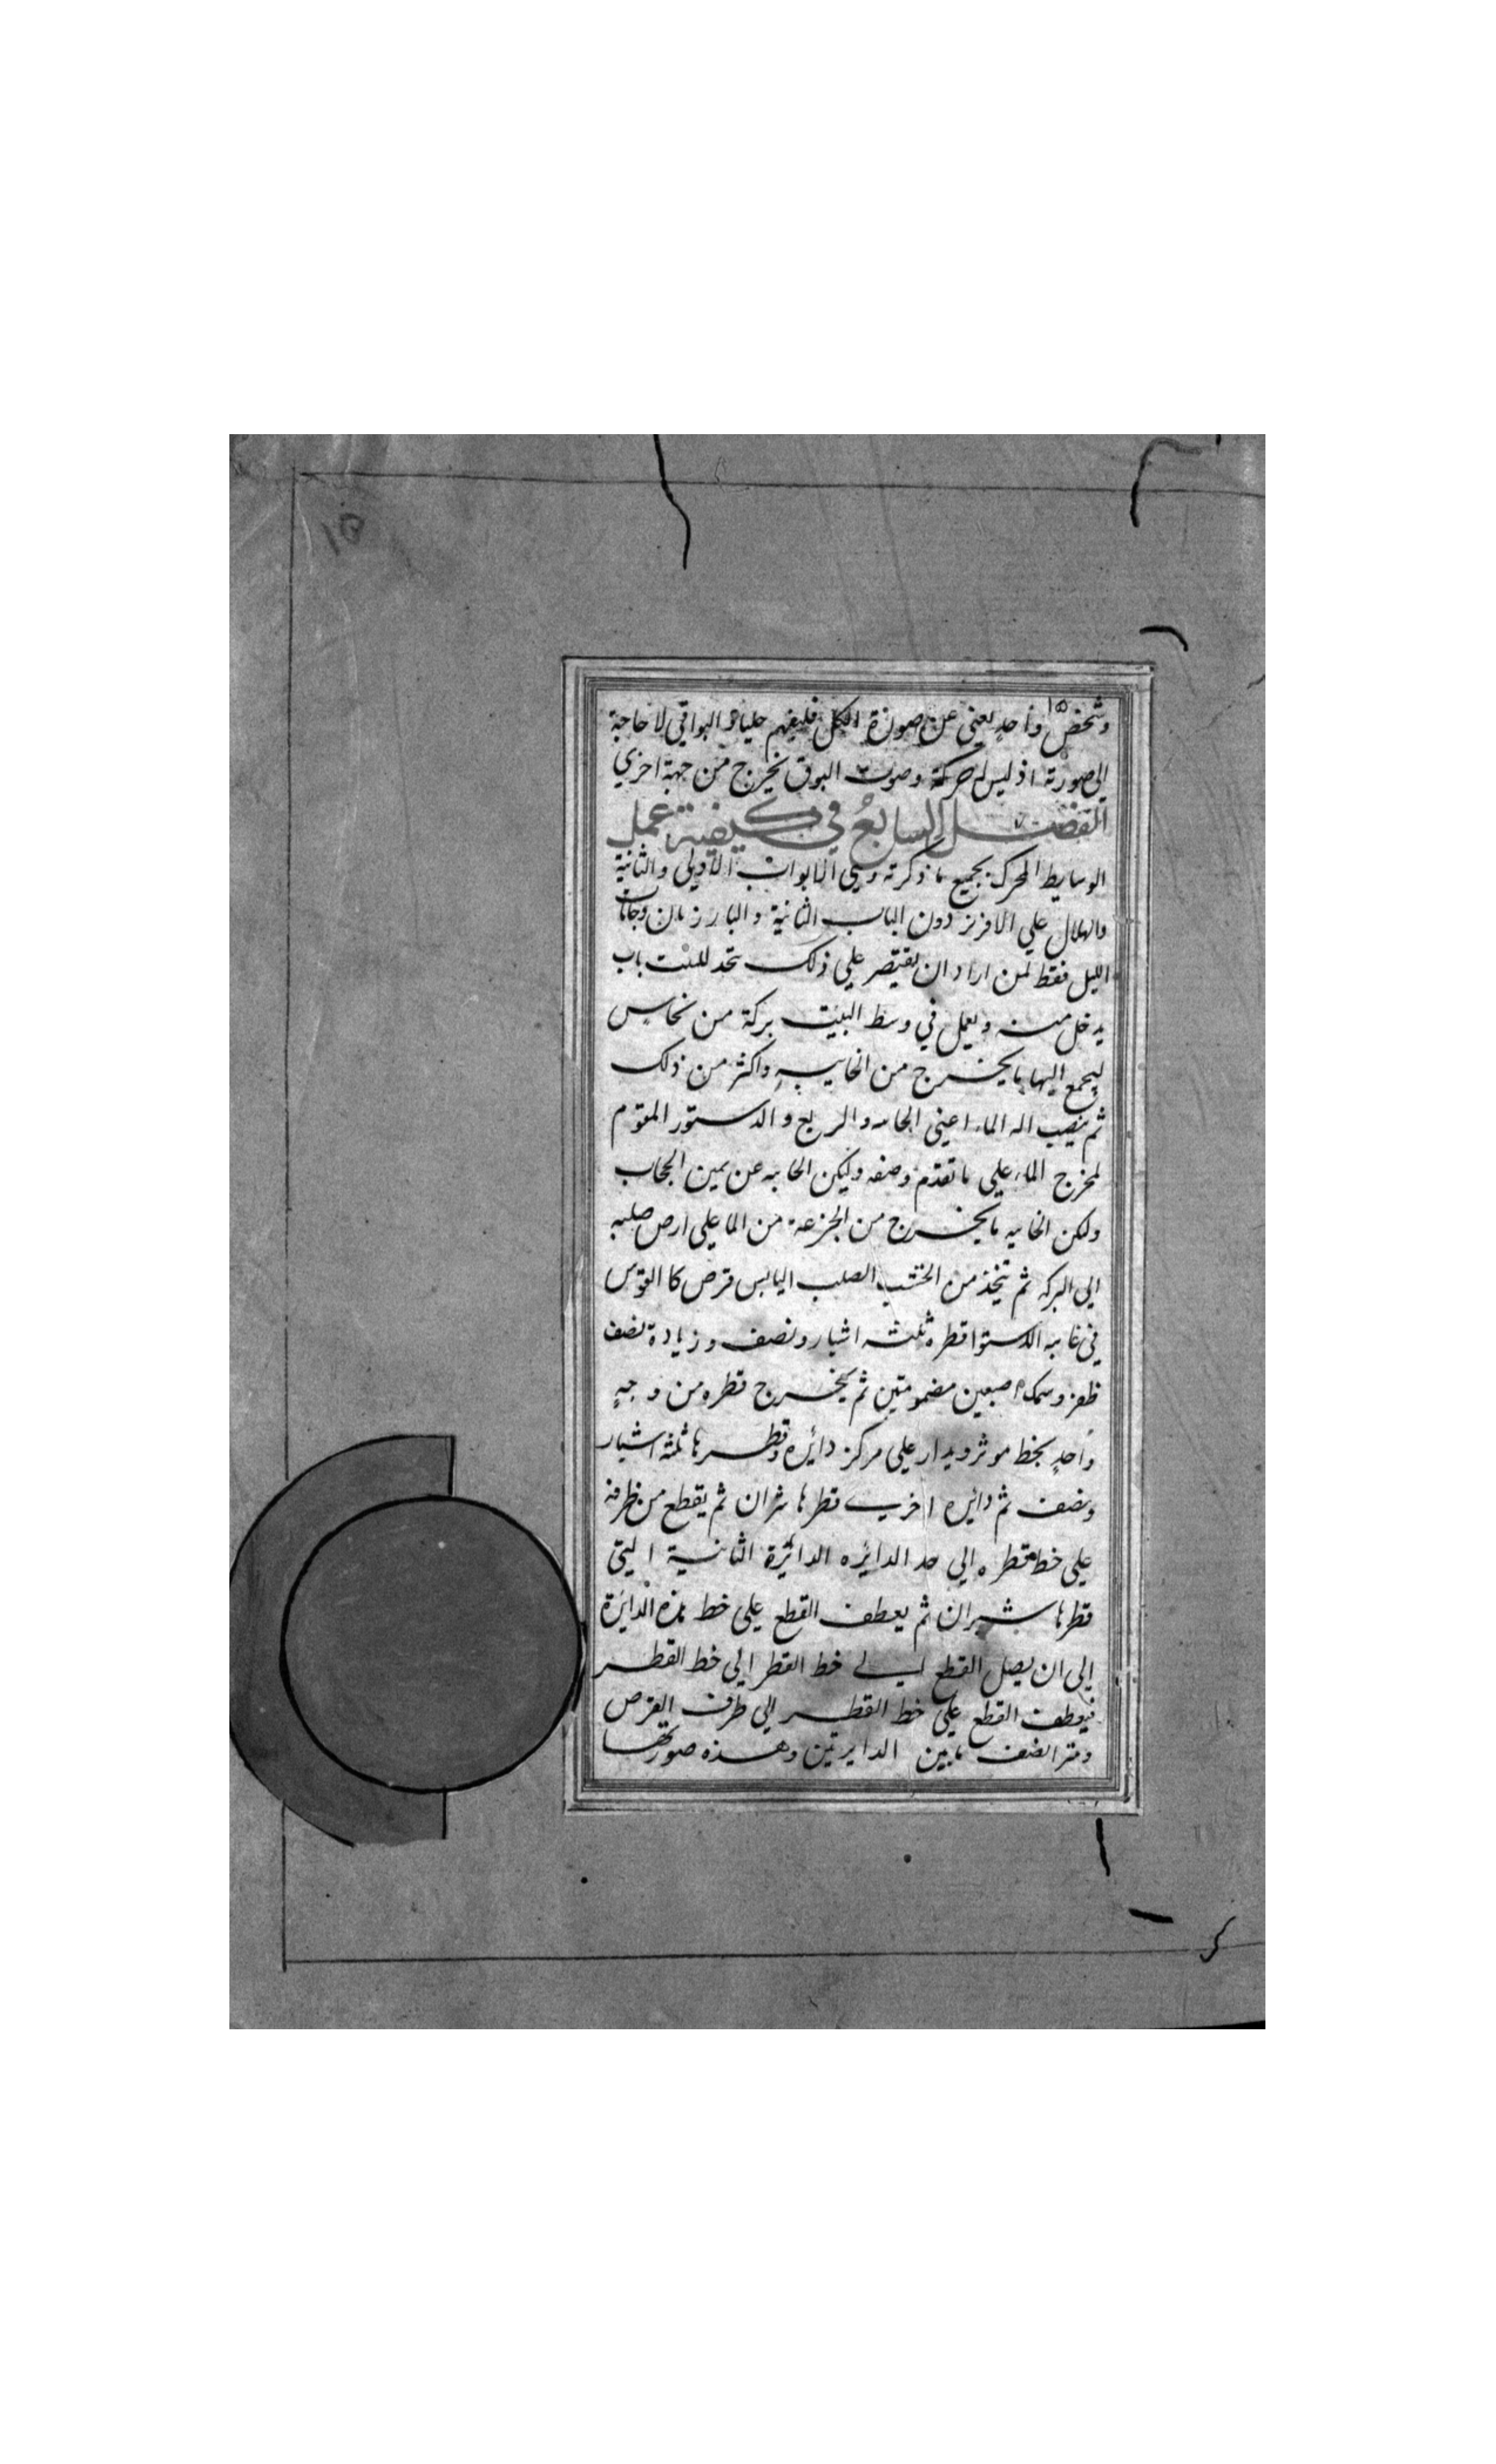 ١٥
١٥
وشخص واحد يغني عن صورة الكل فليفهم البواقي لا حاجة
الي صورته اذ ليس له حركة وصوت البوق يخرج من جهة اخري
الفصل السابع في كيفية عمل
الوسايط المحرك بجميع ما ذكرته وهي الابواب الاولي والثانية
والهلال علي الافريز دون الباب الثانية والباززان وجامات
الليل فقط لمن اراد ان يقتصر علي ذلك يتخد للبيت باب
يدخل منه ويعمل في وسط البيت بركة من نحاس
ليجمع اليها ما يخرج من الخابيه واكثر من ذلك
ثم ينصب اله الماء اعني الخابيه والربع والدستور المقوم
لمخرج الماء علي ما تقدم وصفه وليكن الخابيه عن يمين الحجاب
ولكن الخابيه ما يخرج من الجزعه من الما علي ارض صلبه
الي البركه ثم يتخذ من الخشب الصلب اليابس قرص كا القوس
في غايه الاستوا قطره ثلثه اشبار ونصف وزيادة نصف
ظفر وسمكه اصبعين مضمومتين ثم يخرج قطره من وجهٍ
واحدٍ بخط موثر ويدار علي مركز دائره وقطرها ثلثة اشبار
ونصف ثم دائره اخري قطرها شبران ثم يقطع من طرفه
علي خط قطره الي حد الدائره الدائرة الثانية التي
قطرها شبران ثم يعطف القطع علي خط هذه الدائرة
الي ان يصل القطع الي خط القطر الي خط القطر
فيعطف القطع علي خط القطر الي طرف القرص
ما بين الدايرتين وهذه صورتها